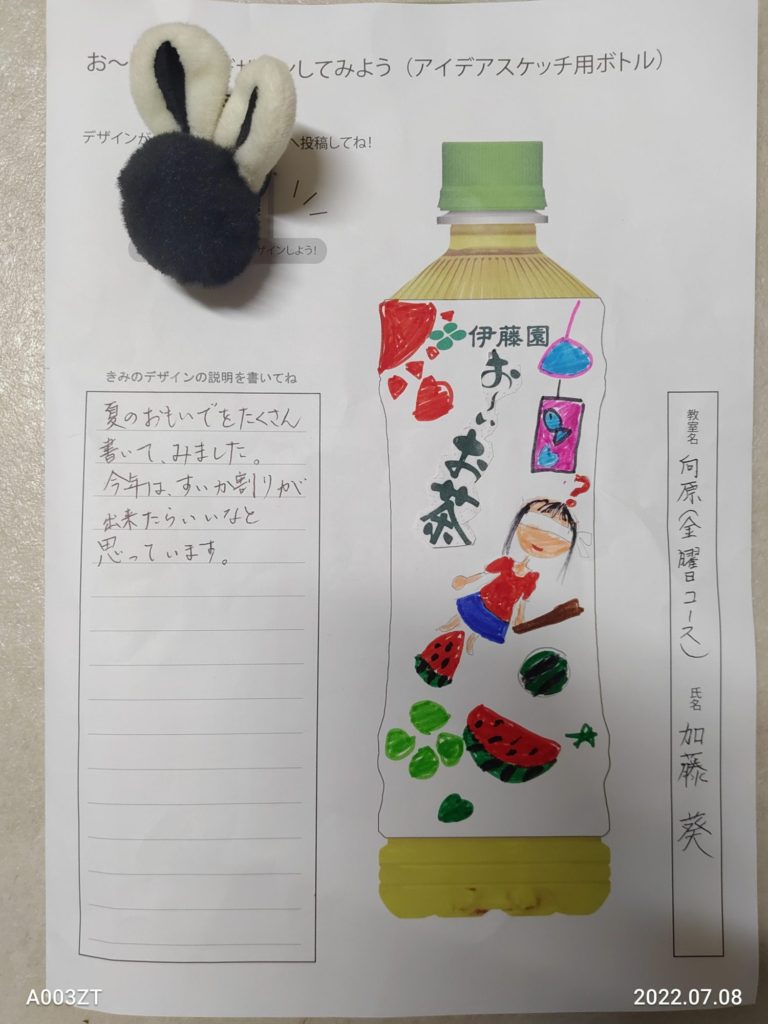 お～ ンしてみよう（アイデアスケッチ用ボトル）
デザインが
投稿してね!
ザインしよう!
きみのデザインの説明を書いてね
夏のおもいでをたくさん
書いて、みました。
今年は、すいか割りが
出来たらいいなと
思っています。
伊藤園
お～い
お茶
?
教室名 向原(金曜日コース)
氏名 加藤 葵
A003ZT
2022.07.08